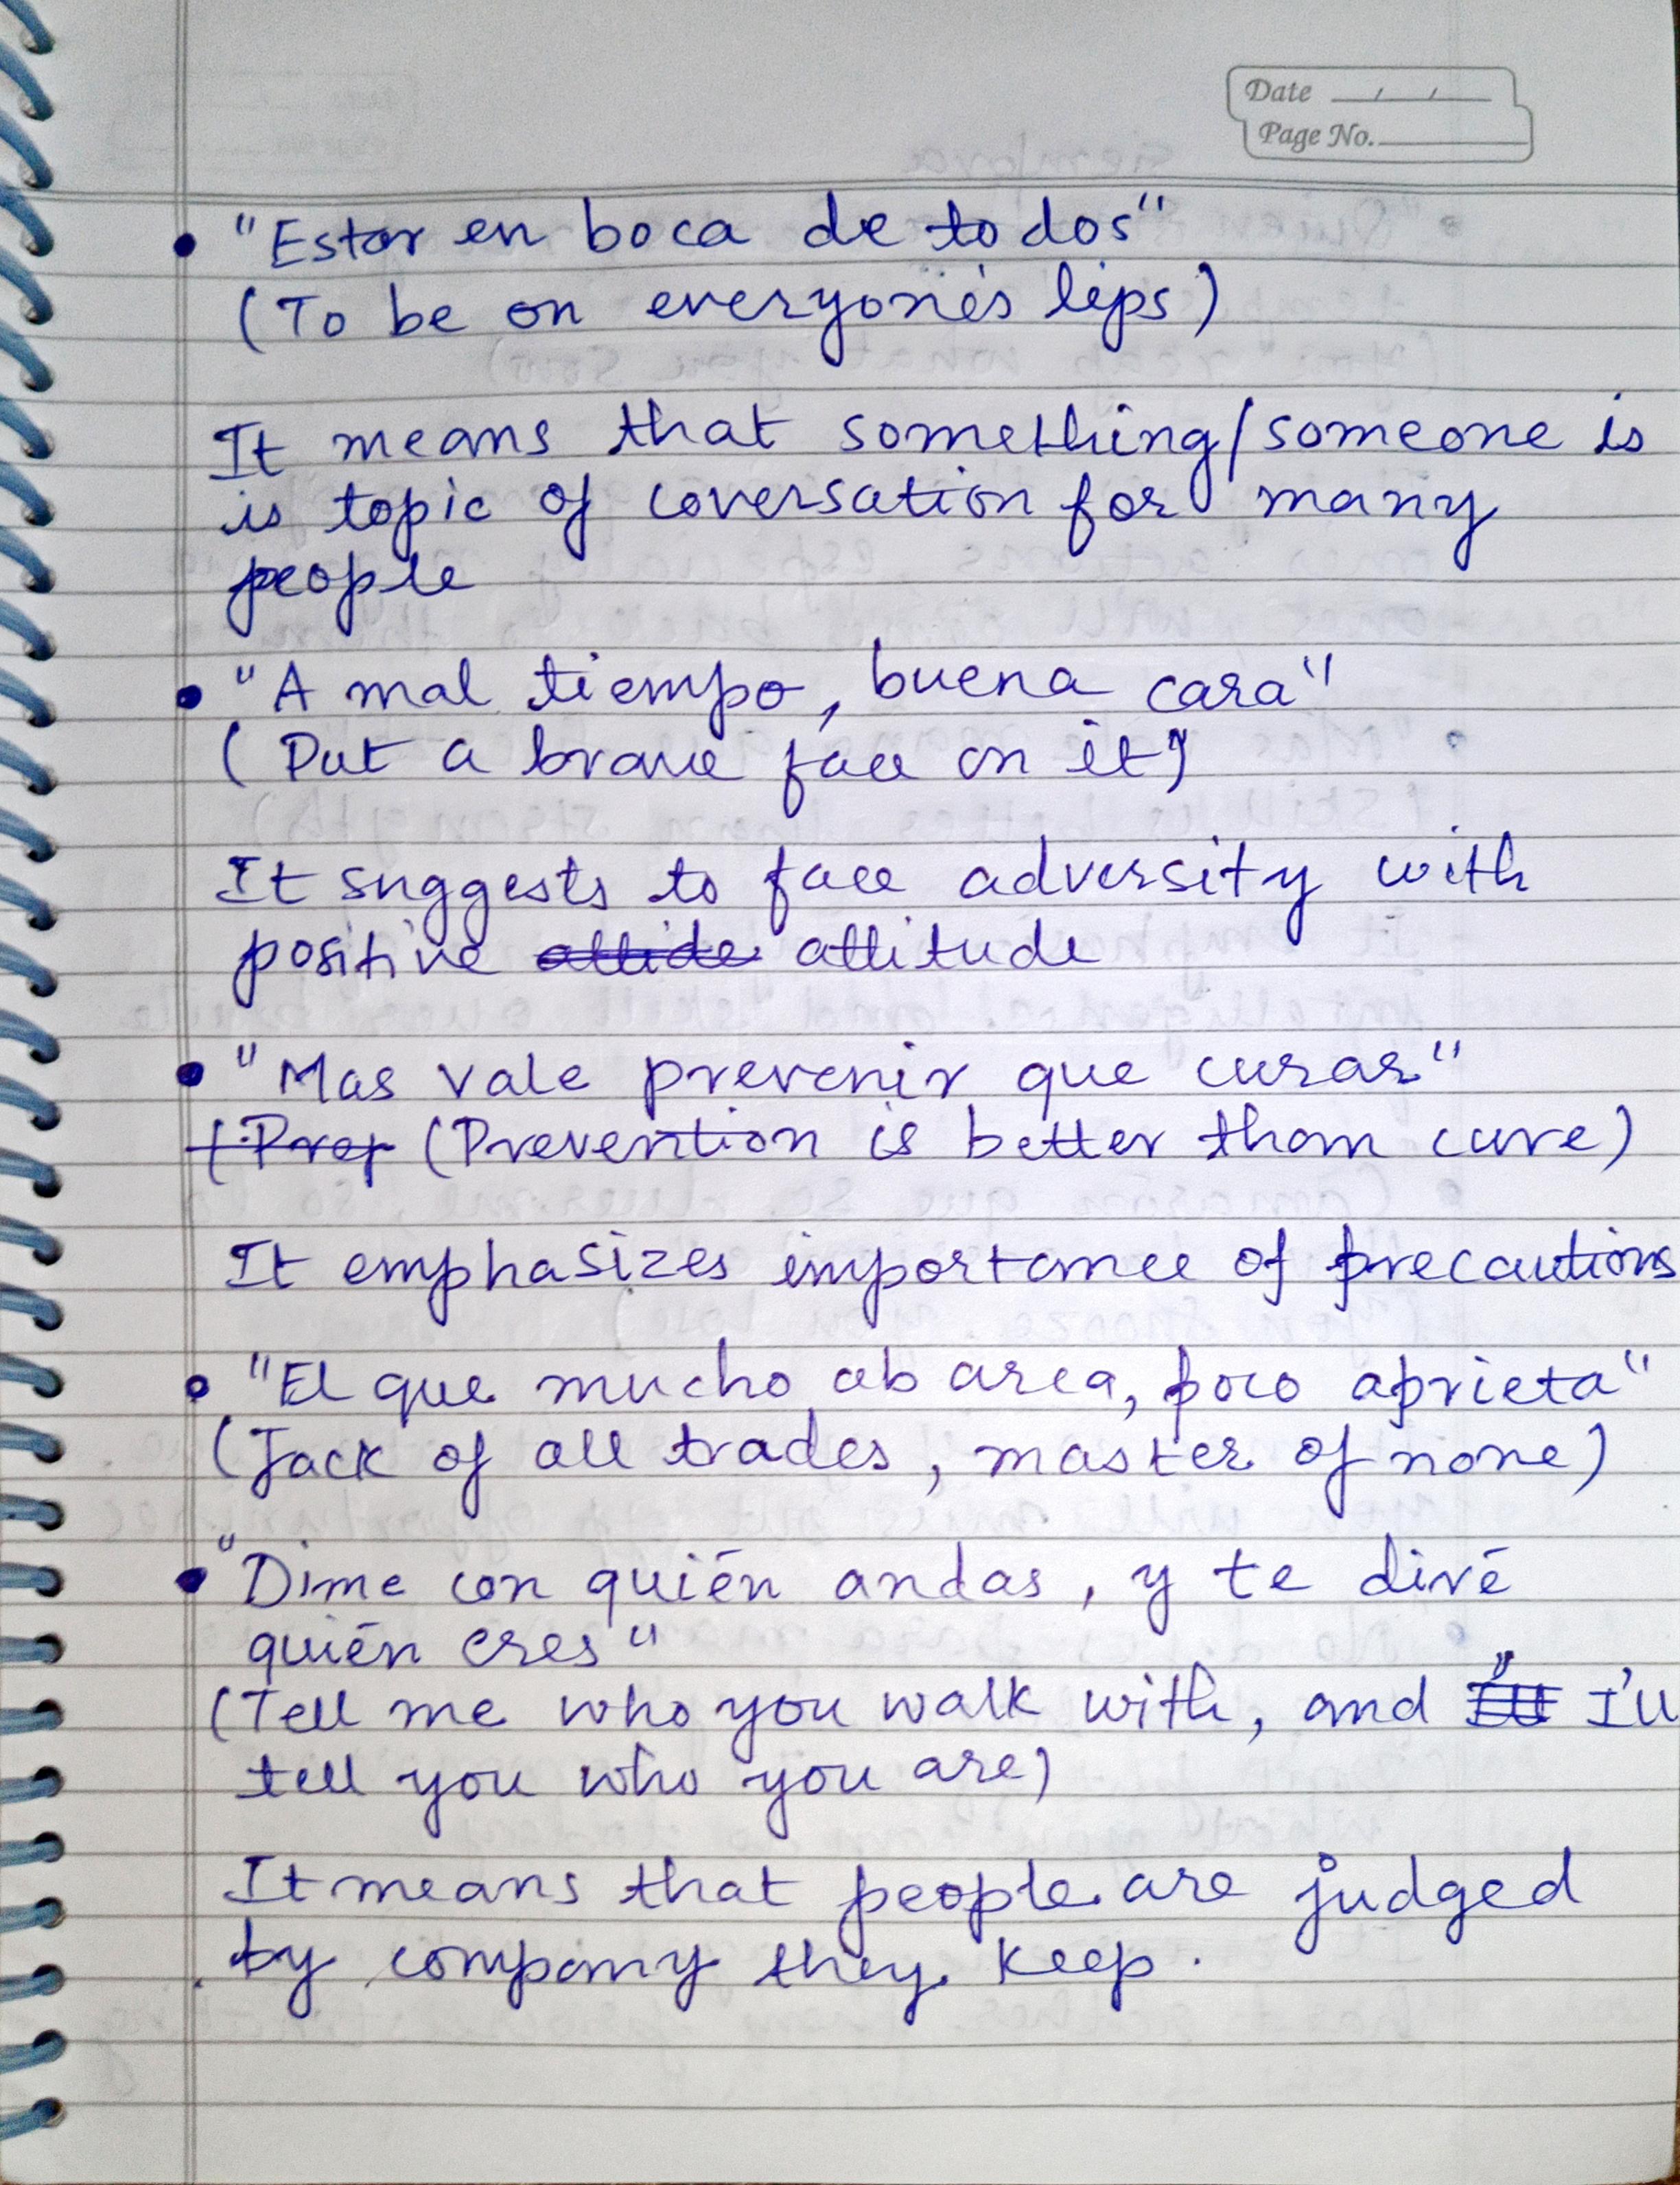 Date / /
Page No.
• "Estar en boca de todos"
(To be on everyone's lips)
It means that something/someone is
is topic of coversation for many
people
• "A mal tiempo, buena cara"
(Put a brave face on it)
It suggests to face adversity with
positive attitude
• "Mas vale prevenir que curar"
(Prevention is better than cure)
It emphasizes importance of precautions
• "El que mucho abarca, poco aprieta"
(Jack of all trades, master of none)
• "Dime con quién andas, y te diré
quién eres"
(Tell me who you walk with, and I'll
tell you who you are)
It means that people are judged
by company they keep.